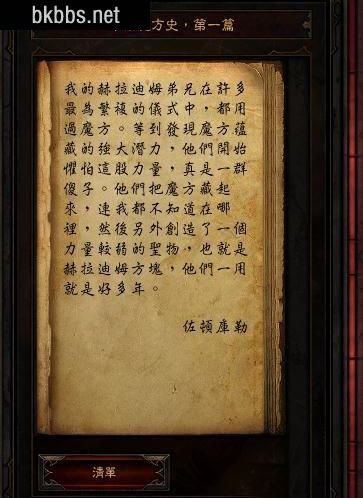 bkbbs.net
方史，第一篇
我的赫拉迪姆弟兄在許多
最為繁複的儀式中，都用
過魔方。等到發現魔方蘊
藏的強大潛力，他們開始
懼怕這股力量，真是一群
傻子。他們把魔方藏起
來，連我都不知道在哪
裡，然後另外創造了一個
力量較弱的聖物，也就是
赫拉迪姆方塊，他們一用
就是好多年。
佐頓庫勒
清單